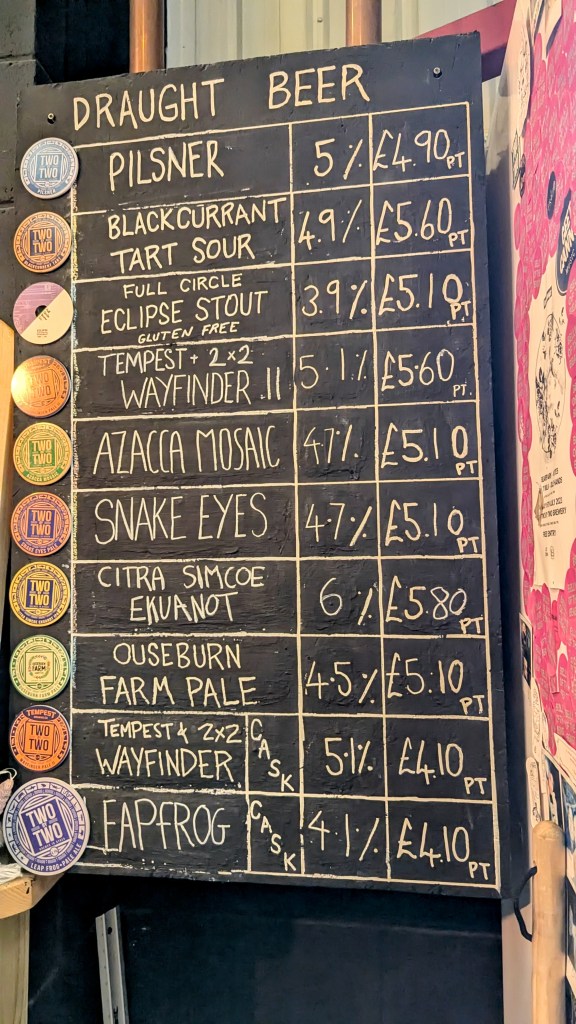 DRAUGHT BEER
TWO BY TWO
PILSNER
PILSNER 5% £4.90 PT
TWO BY TWO
BLACKCURRANT
TART SOUR 4.9% £5.60 PT
FULL CIRCLE
ECLIPSE STOUT
GLUTEN FREE 3.9% £5.10 PT
TWO BY TWO
TEMPEST + 2×2
WAYFINDER 11 5.1% £5.60 PT.
TWO BY TWO
AZACCA MOSAIC 4.7% £5.10 PT
TWO BY TWO
SNAKE EYES PALE
SNAKE EYES 4.7% £5.10 PT
TWO BY TWO
CITRA SIMCOE
EKUANOT 6% £5.80 PT
OUSEBURN
FARM PALE 4.5% £5.10 PT
TEMPEST
TWO BY TWO
TEMPEST & 2×2
WAYFINDER CASK 5.1% £4.10 PT
TWO BY TWO
LEAP FROG • PALE ALE
EAPFROG CASK 4.1% £4.10 PT